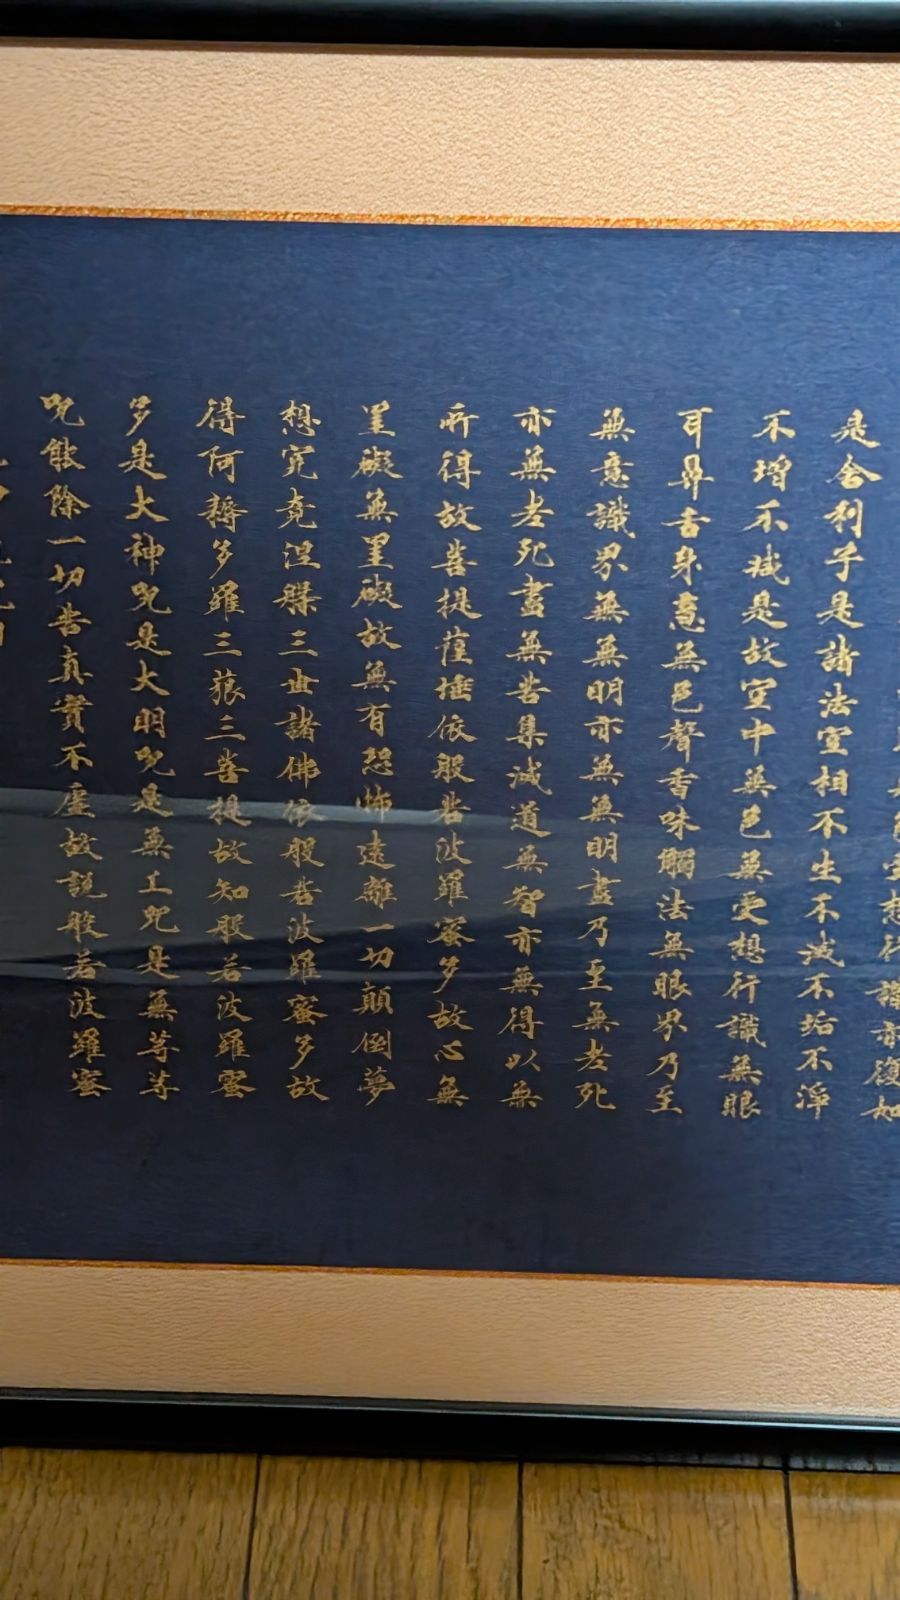 想行識亦復如
是舍利子是諸法空相不生不滅不垢不淨
不增不減是故空中無色無受想行識無眼
耳鼻舌身意無色聲香味觸法無眼界乃至
無意識界無無明亦無無明盡乃至無老死
亦無老死盡無苦集滅道無智亦無得以無
所得故菩提薩埵依般若波羅蜜多故心無
罣礙無罣礙故無有恐怖遠離一切顛倒夢
想究竟涅槃三世諸佛依般若波羅蜜多故
得阿耨多羅三藐三菩提故知般若波羅蜜
多是大神呪是大明呪是無上呪是無等等
呪能除一切苦真實不虛故說般若波羅蜜